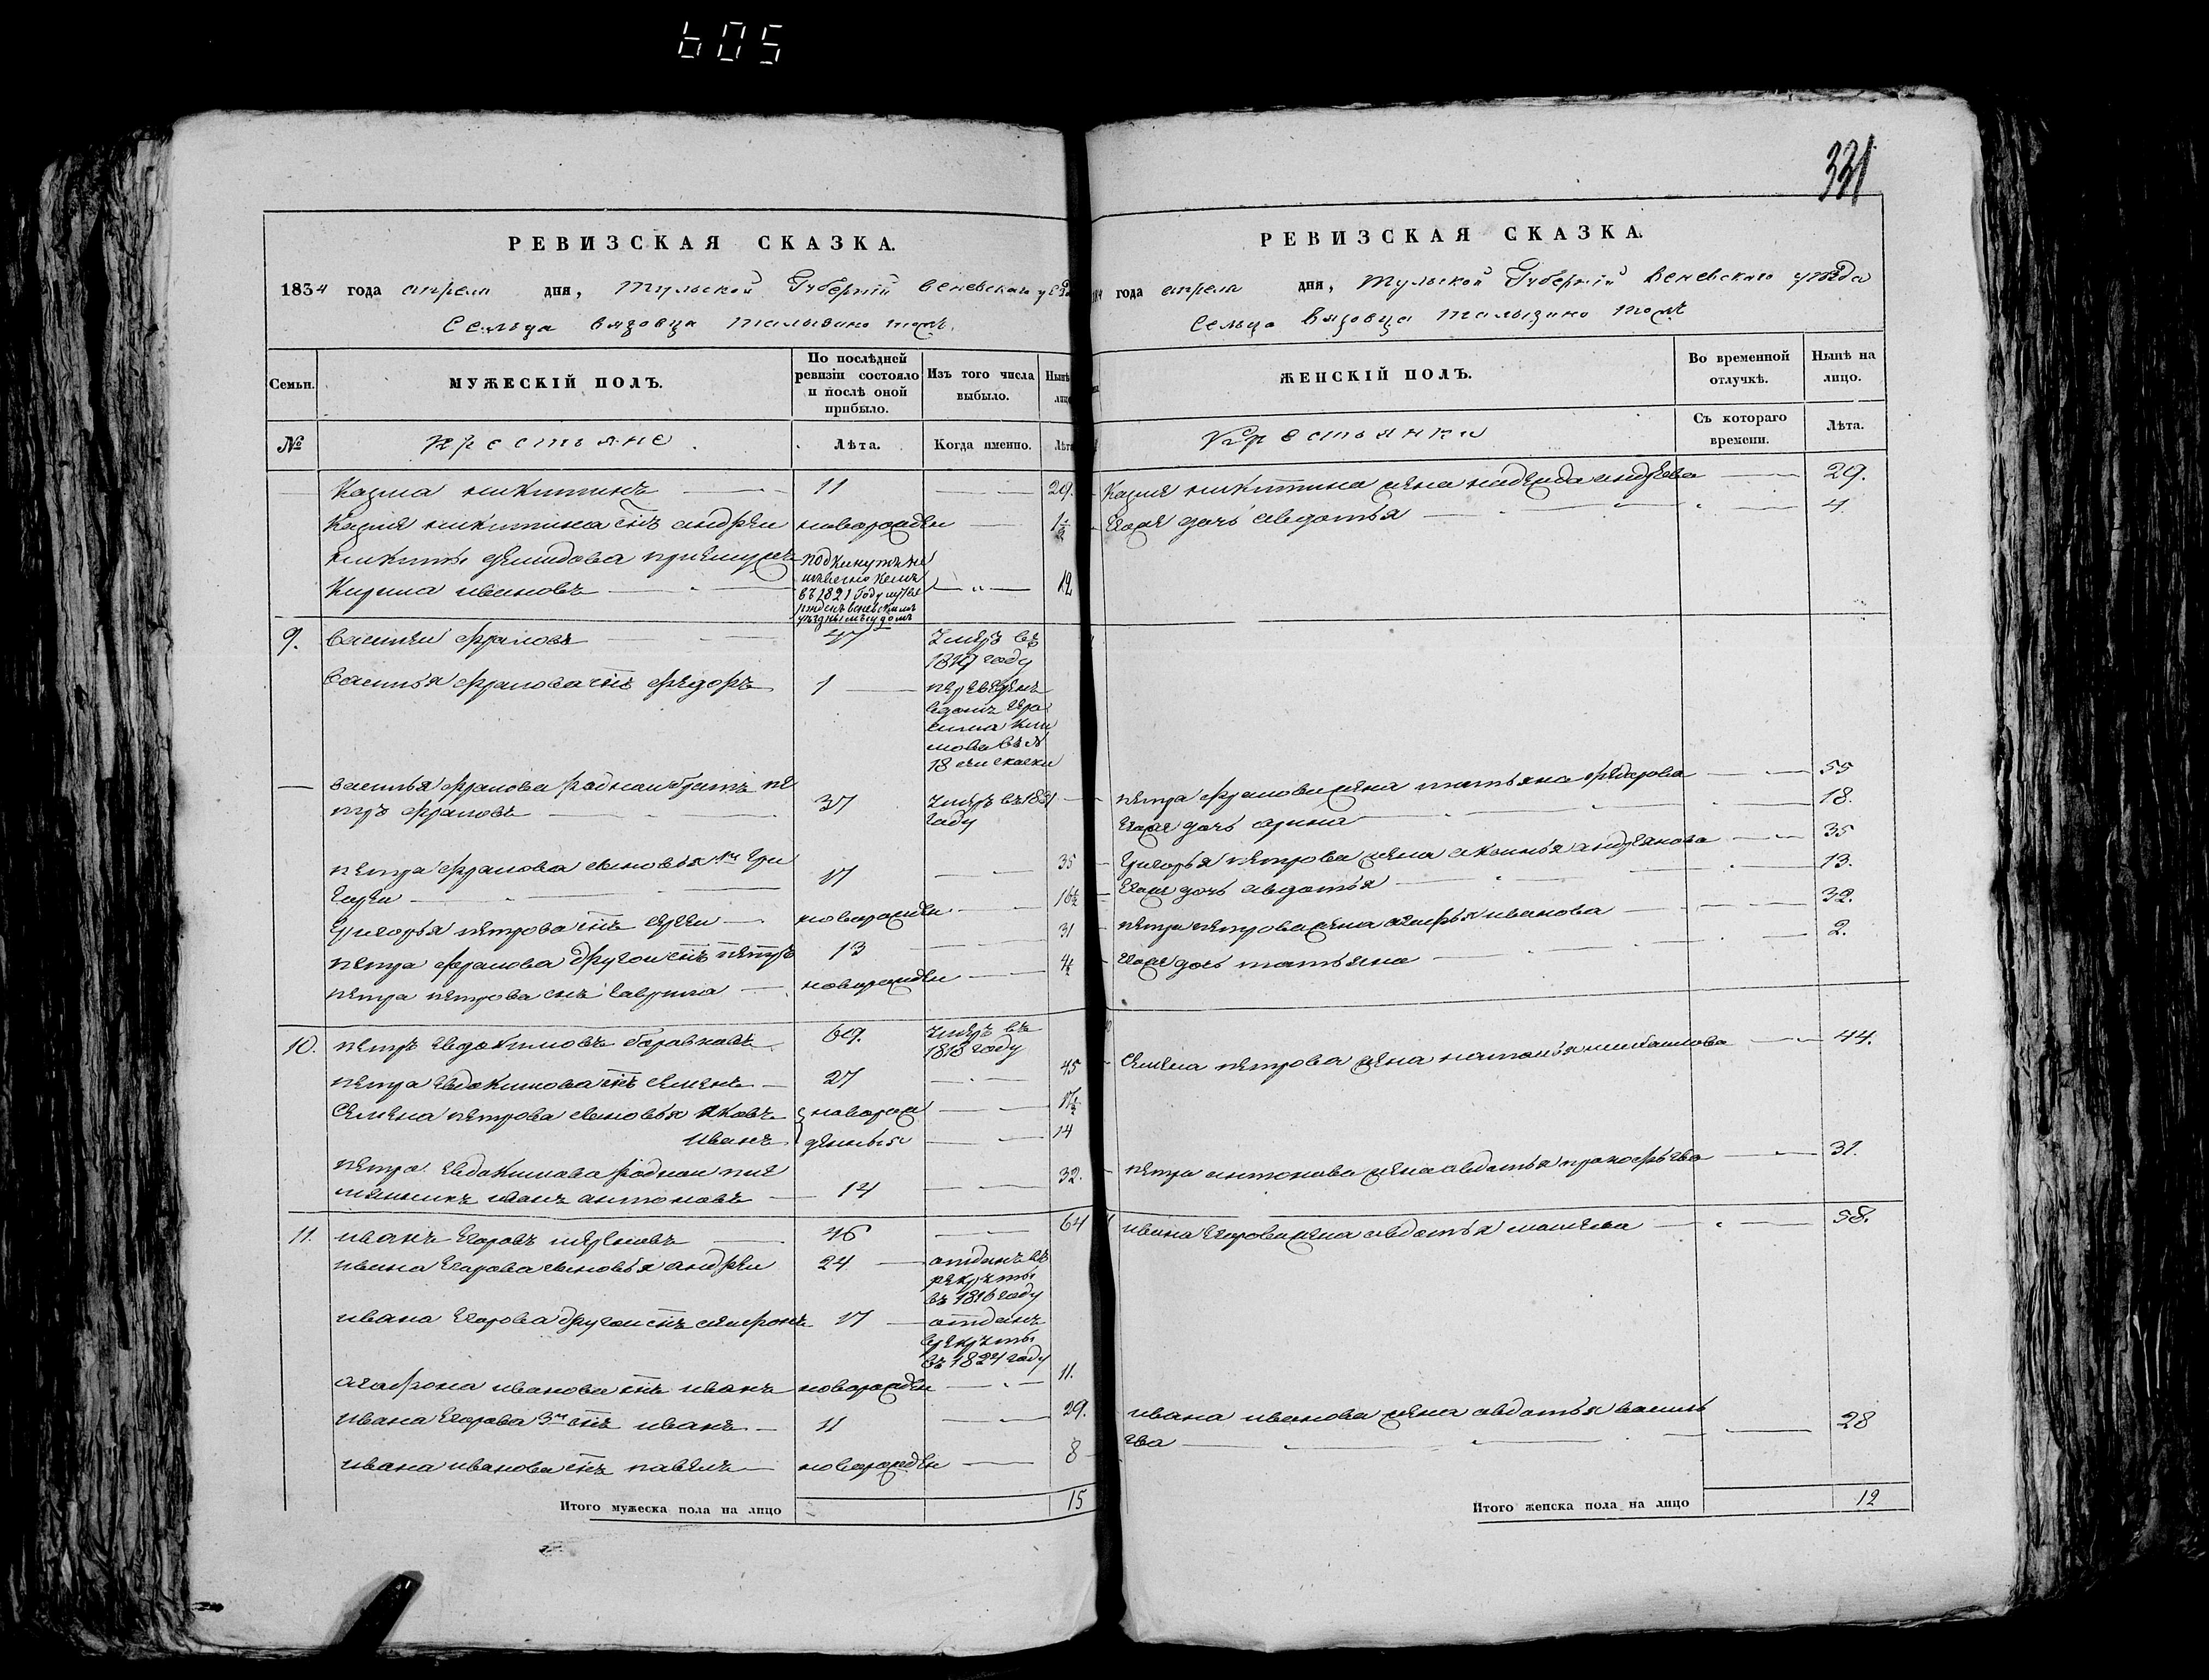 605
331
РЕВИЗСКАЯ СКАЗКА.
1834 года апреля дня, Тульской Губернiи веневскаго
Сельца вязовца Талызино тожъ.
Семьи.
МУЖЕСКІЙ ПОЛЪ.
По послѣдней ревизіи состояло и послѣ оной прибыло.
Изъ того числа выбыло.
Нынѣ
№
крестьяне
Лѣта.
Когда именно.
Козма никитинъ 11 29.
Казмы никитина снъ андреи новорожден 1½
никиты демидова приемышъ подкинутъ не
Кирила ивановъ 12
въ 1821 году
9. Василеи фраловъ 47 умеръ въ
1819 году
Василья фралова снъ федоръ 1 переведенъ
18 сеи скаски
Василья фралова роднои братъ пе
тръ фраловъ 37 умеръ въ 1831
году
петра фралова сыновья 1й гри
гореи 17 35
Григорья петрова снъ сергеи новорожден 16½
петра фралова другои снъ петръ 13 31
петра петрова снъ гаврила новорожден 4½
10. петръ евдокимовъ 69. умеръ въ
1818 году
петра евдокимова снъ семенъ 27 45
Семена петрова сыновья яковъ новорож 17½
иванъ денныя 14
петра евдокимова роднои пле
мянникъ иванъ антоновъ 14 32.
11. иванъ егоровъ 46 64
ивана егорова сыновья андреи 24 отданъ въ
рекруты
въ 1816 году
ивана егорова другои снъ агафонъ 17 отданъ
в рекруты
въ 1824 году
агафона иванова снъ иванъ новорожден 11.
ивана егорова 3й снъ иванъ 11 29.
ивана иванова снъ павелъ новорожден 8
Итого мужеска пола на лицо 15
РЕВИЗСКАЯ СКАЗКА.
года апреля дня, Тульской Губернiи веневскаго уезда
Сельца вязовца Талызино тожъ
ЖЕНСКІЙ ПОЛЪ.
Во временной отлучкѣ.
Нынѣ на лицо.
Крестьянки
Съ котораго времени.
Лѣта.
Казмы никитина жена надежда андреева 29.
Егоже дочь авдотья 4
петра фралова жена татьяна федорова 55
Егоже дочь арина 18.
Григорья петрова жена аксинья андреянова 35
Егоже дочь авдотья 13.
петра петрова жена агафья иванова 32.
Егоже дочь татьяна 2.
Семена петрова жена наталья михаилова 44.
петра антонова жена авдотья прокофьева 31.
ивана егорова жена авдотья 58.
ивана иванова жена авдотья василь
ева 28
Итого женска пола на лицо 12